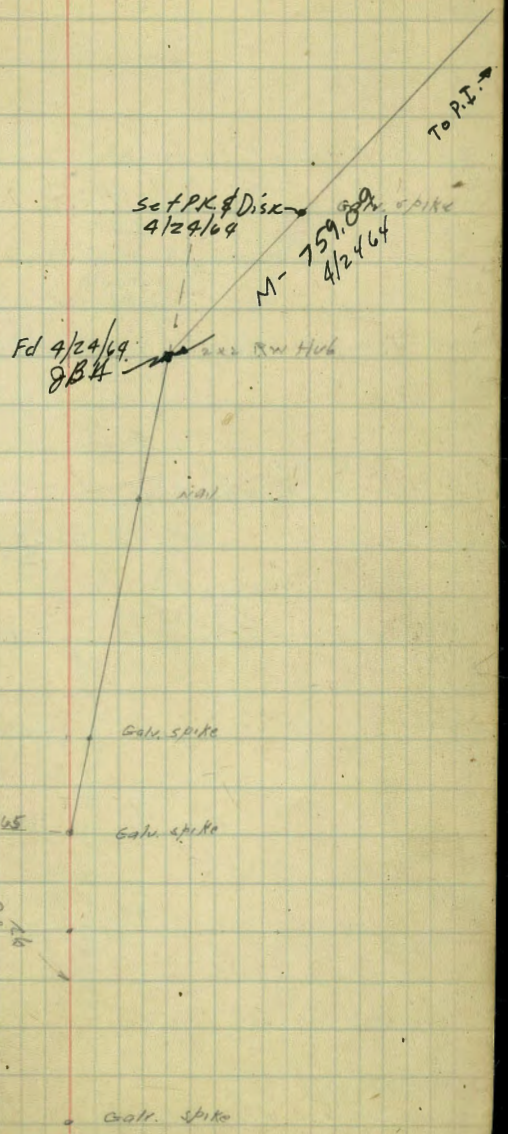 To P.I.
Set PK & Disk
4/24/64
Galv. spike
M- 759.09
4/24/64
Fd 4/24/64
JBH
2x2 RW Hub
Nail
Galv. spike
65
Galv. spike
Galv. spike